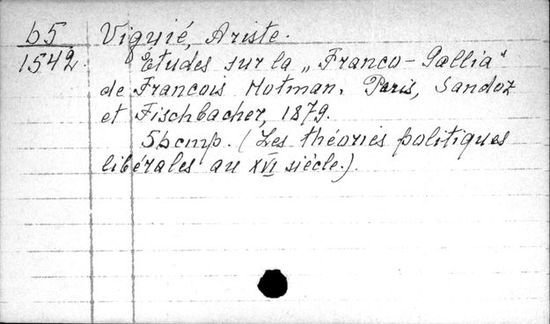 b5 Viguié, Ariste.
1542. Études sur la „Franco-Gallia"
de Francois Hotman. Paris, Sandoz
et Fischbacher, 1879.
56 стр. (Les théories politiques
libérales au XVI siècle.).